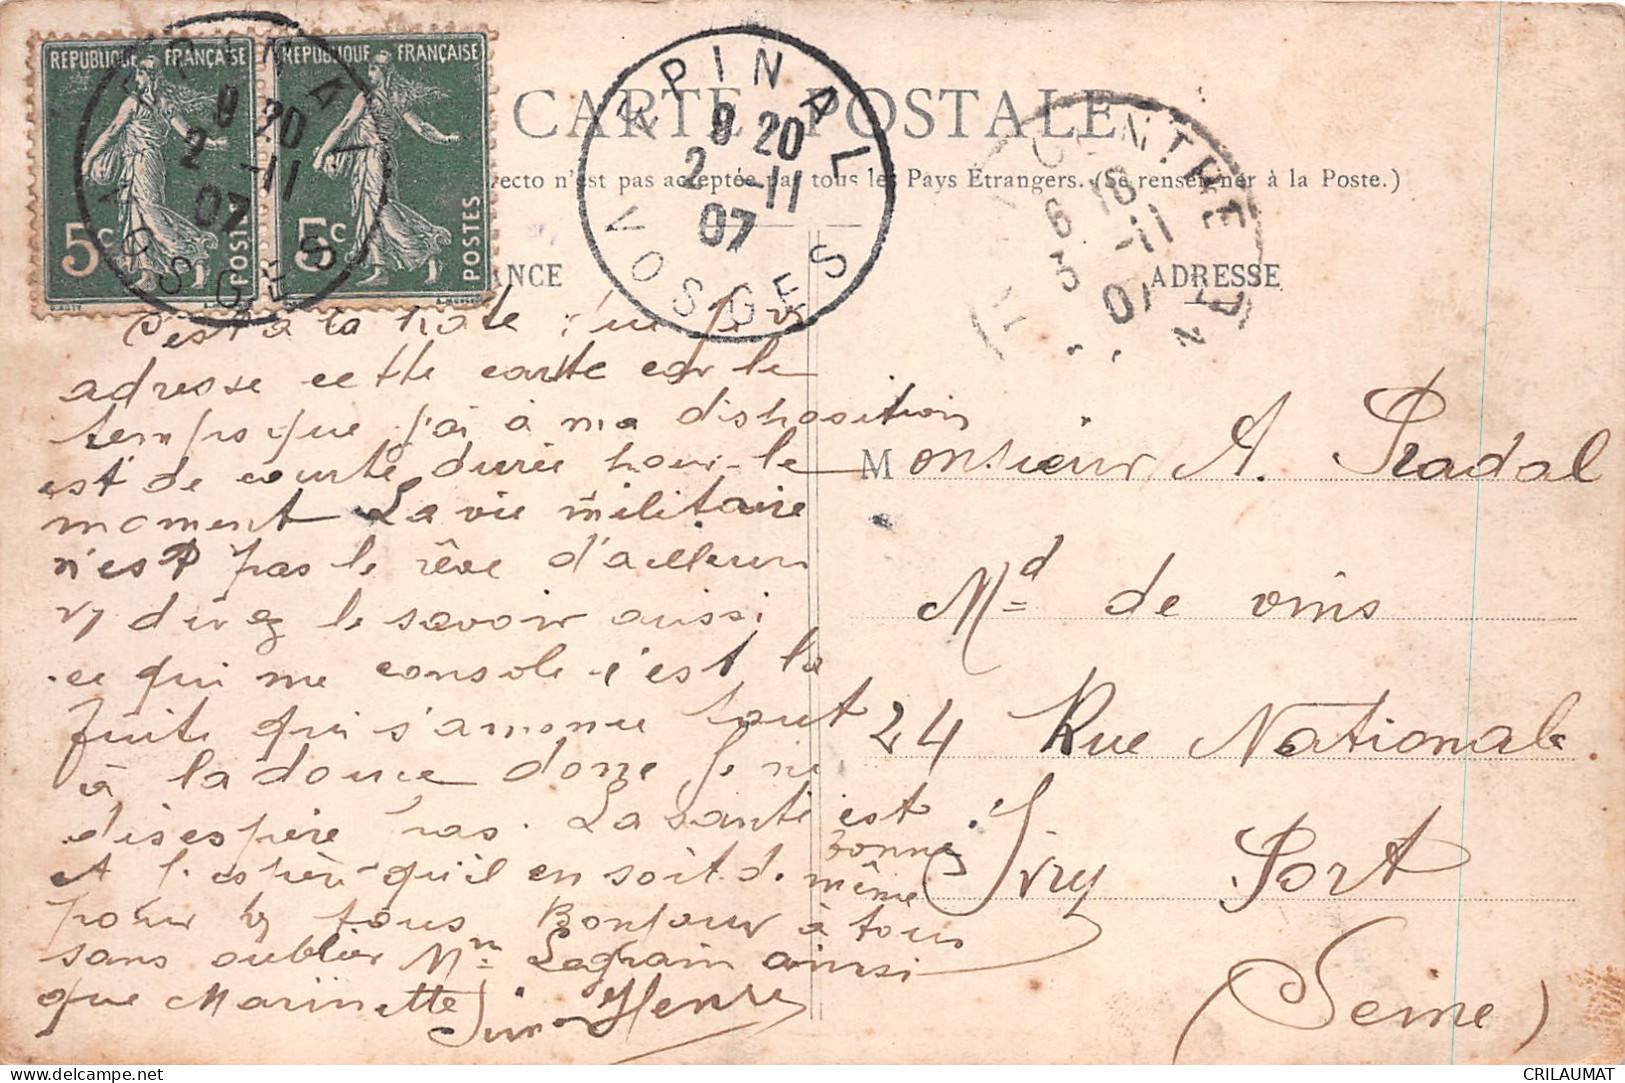 REPUBLIQUE FRANÇAISE
5c POSTES
REPUBLIQUE FRANÇAISE
5c POSTES
EPINAL
9 20
2 -11
07
VOSGES
EPINAL
9 20
2 -11
07
VOSGES
CARTE POSTALE
recto n'est pas acceptée par tous les Pays Etrangers. (Se renseigner à la Poste.)
CENTRE
18
3 -11
07
ANCE
ADRESSE
C'est à la hate que je vs
adresse cette carte car le
temps que j'ai à ma disposition
est de courte durée pour le
moment La vie militaire
n'est pas le rêve d'ailleurs
vs devez le savoir aussi
ce qui me console c'est la
fuite qui s'amene tout
à la douce donc je ne
désespère pas. La santé est bonne
et j'espère qu'il en soit de même
pour vs tous Bonjour à tous
sans oublier Mm Legrain ainsi
que Marinette
Henri
Monsieur A. Pradal
Md de vins
24 Rue Nationale
Ivry Port
(Seine)
CRILAUMAT